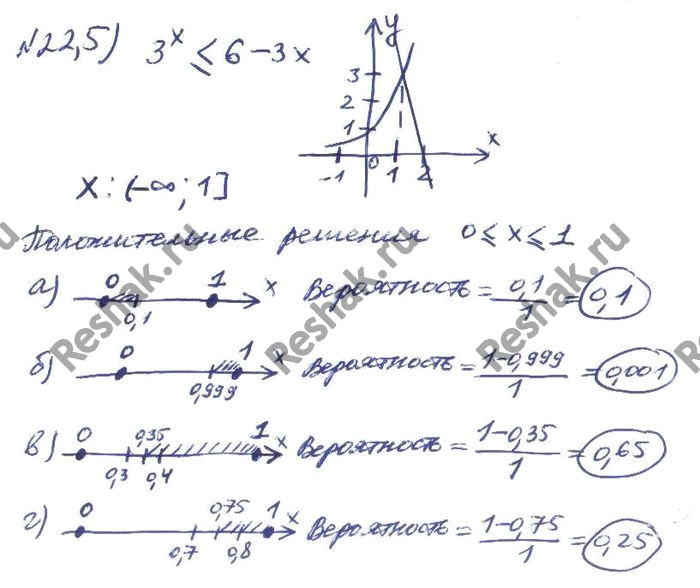 №22,5) 3^x ≤ 6-3x
y
3
2
1
x
-1 0 1 2
x: (-∞; 1]
Положительные решения 0 ≤ x ≤ 1
а) 0 1 x Вероятность = 0,1/1 = 0,1
0,1
б) 0 1 x Вероятность = 1-0,999/1 = 0,001
0,999
в) 0 0,35 1 x Вероятность = 1-0,35/1 = 0,65
0,3 0,4
г) 0 0,75 1 x Вероятность = 1-0,75/1 = 0,25
0,7 0,8
Reshak.ru
Reshak.ru
Reshak.ru